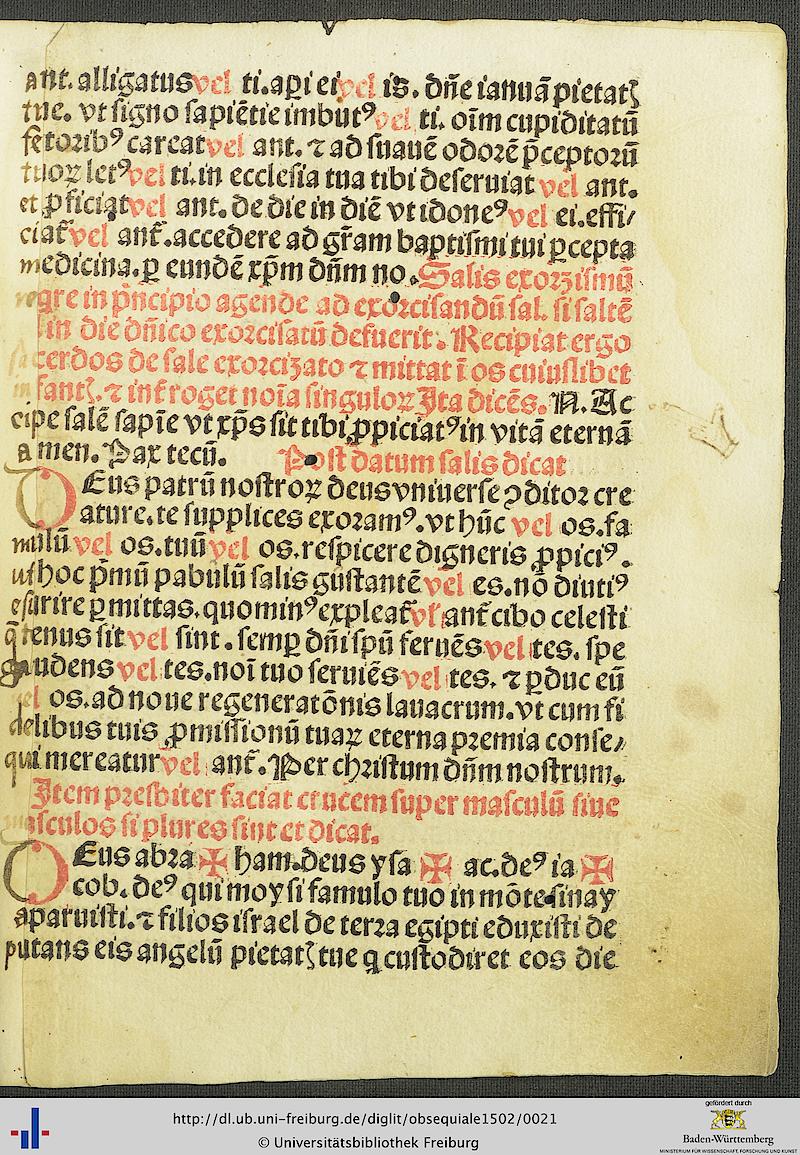 ant. alligatus vel ti. api ei vel is. dñe ianuā pietatꝫ
tue. vt signo sapiētie imbutꝰ vel ti. oīm cupiditatū
fetoribꝰ careat vel ant. ⁊ ad suauē odorē p̄ceptorū
tuoꝝ letꝰ vel ti. in ecclesia tua tibi deseruiat vel ant.
et ꝓficiat vel ant. de die in diē vt idoneꝰ vel ei. effi/
ciat᷑ vel ant᷑. accedere ad gr̄am baptismi tui ꝑcepta
medicina. ꝑ eundē xp̄m dn̄m no. Salis exorzismū
regre in pͥncipio agende ad exorcisandū sal. si saltē
in die dñico exorcisatū defuerit. Recipiat ergo
sacerdos de sale exorcizato ⁊ mittat ī os cuiuslibet
infantꝫ. ⁊ int᷑roget noīa singuloꝝ Ita dicēs. N. Ac
cipe salē sapīe vt xp̄s sit tibi ꝓpiciatꝰ in vitā eternā
amen. Pax tecū. Post datum salis dicat
DEus patrū nostroꝝ deus vniuerse ꝯditor cre
ature. te supplices exoramꝰ. vt hūc vel os. fa
mulū vel os. tuū vel os. respicere digneris ꝓpiciꝰ.
ut hoc pͥmū pabulū salis gustantē vel es. nō diutiꝰ
esurire ꝑmittas. quominꝰ expleat᷑ vł ant᷑ cibo celesti
q̄tenus sit vel sint. semꝑ dñi spū feruēs vel tes. spe
gaudens vel tes. noī tuo seruiēs vel tes. ⁊ ꝑduc eū
vel os. ad noue regeneratōnis lauacrum. vt cum fi
delibus tuis ꝓmissionū tuaꝝ eterna premia conse/
qui mereatur vel ant᷑. Per christum dn̄m nostrum.
Item presbiter faciat crucem super masculū siue
masculos si plures sint et dicat.
DEus abra ✠ ham. deus ysa ✠ ac. deꝰ ia ✠
cob. deꝰ qui moysi famulo tuo in mōte sinay
aparuisti. ⁊ filios israel de terra egipti eduxisti de
putans eis angelū pietatꝫ tue q custodiret eos die
http://dl.ub.uni-freiburg.de/diglit/obsequiale1502/0021
© Universitätsbibliothek Freiburg
gefördert durch
Baden-Württemberg
MINISTERIUM FÜR WISSENSCHAFT, FORSCHUNG UND KUNST